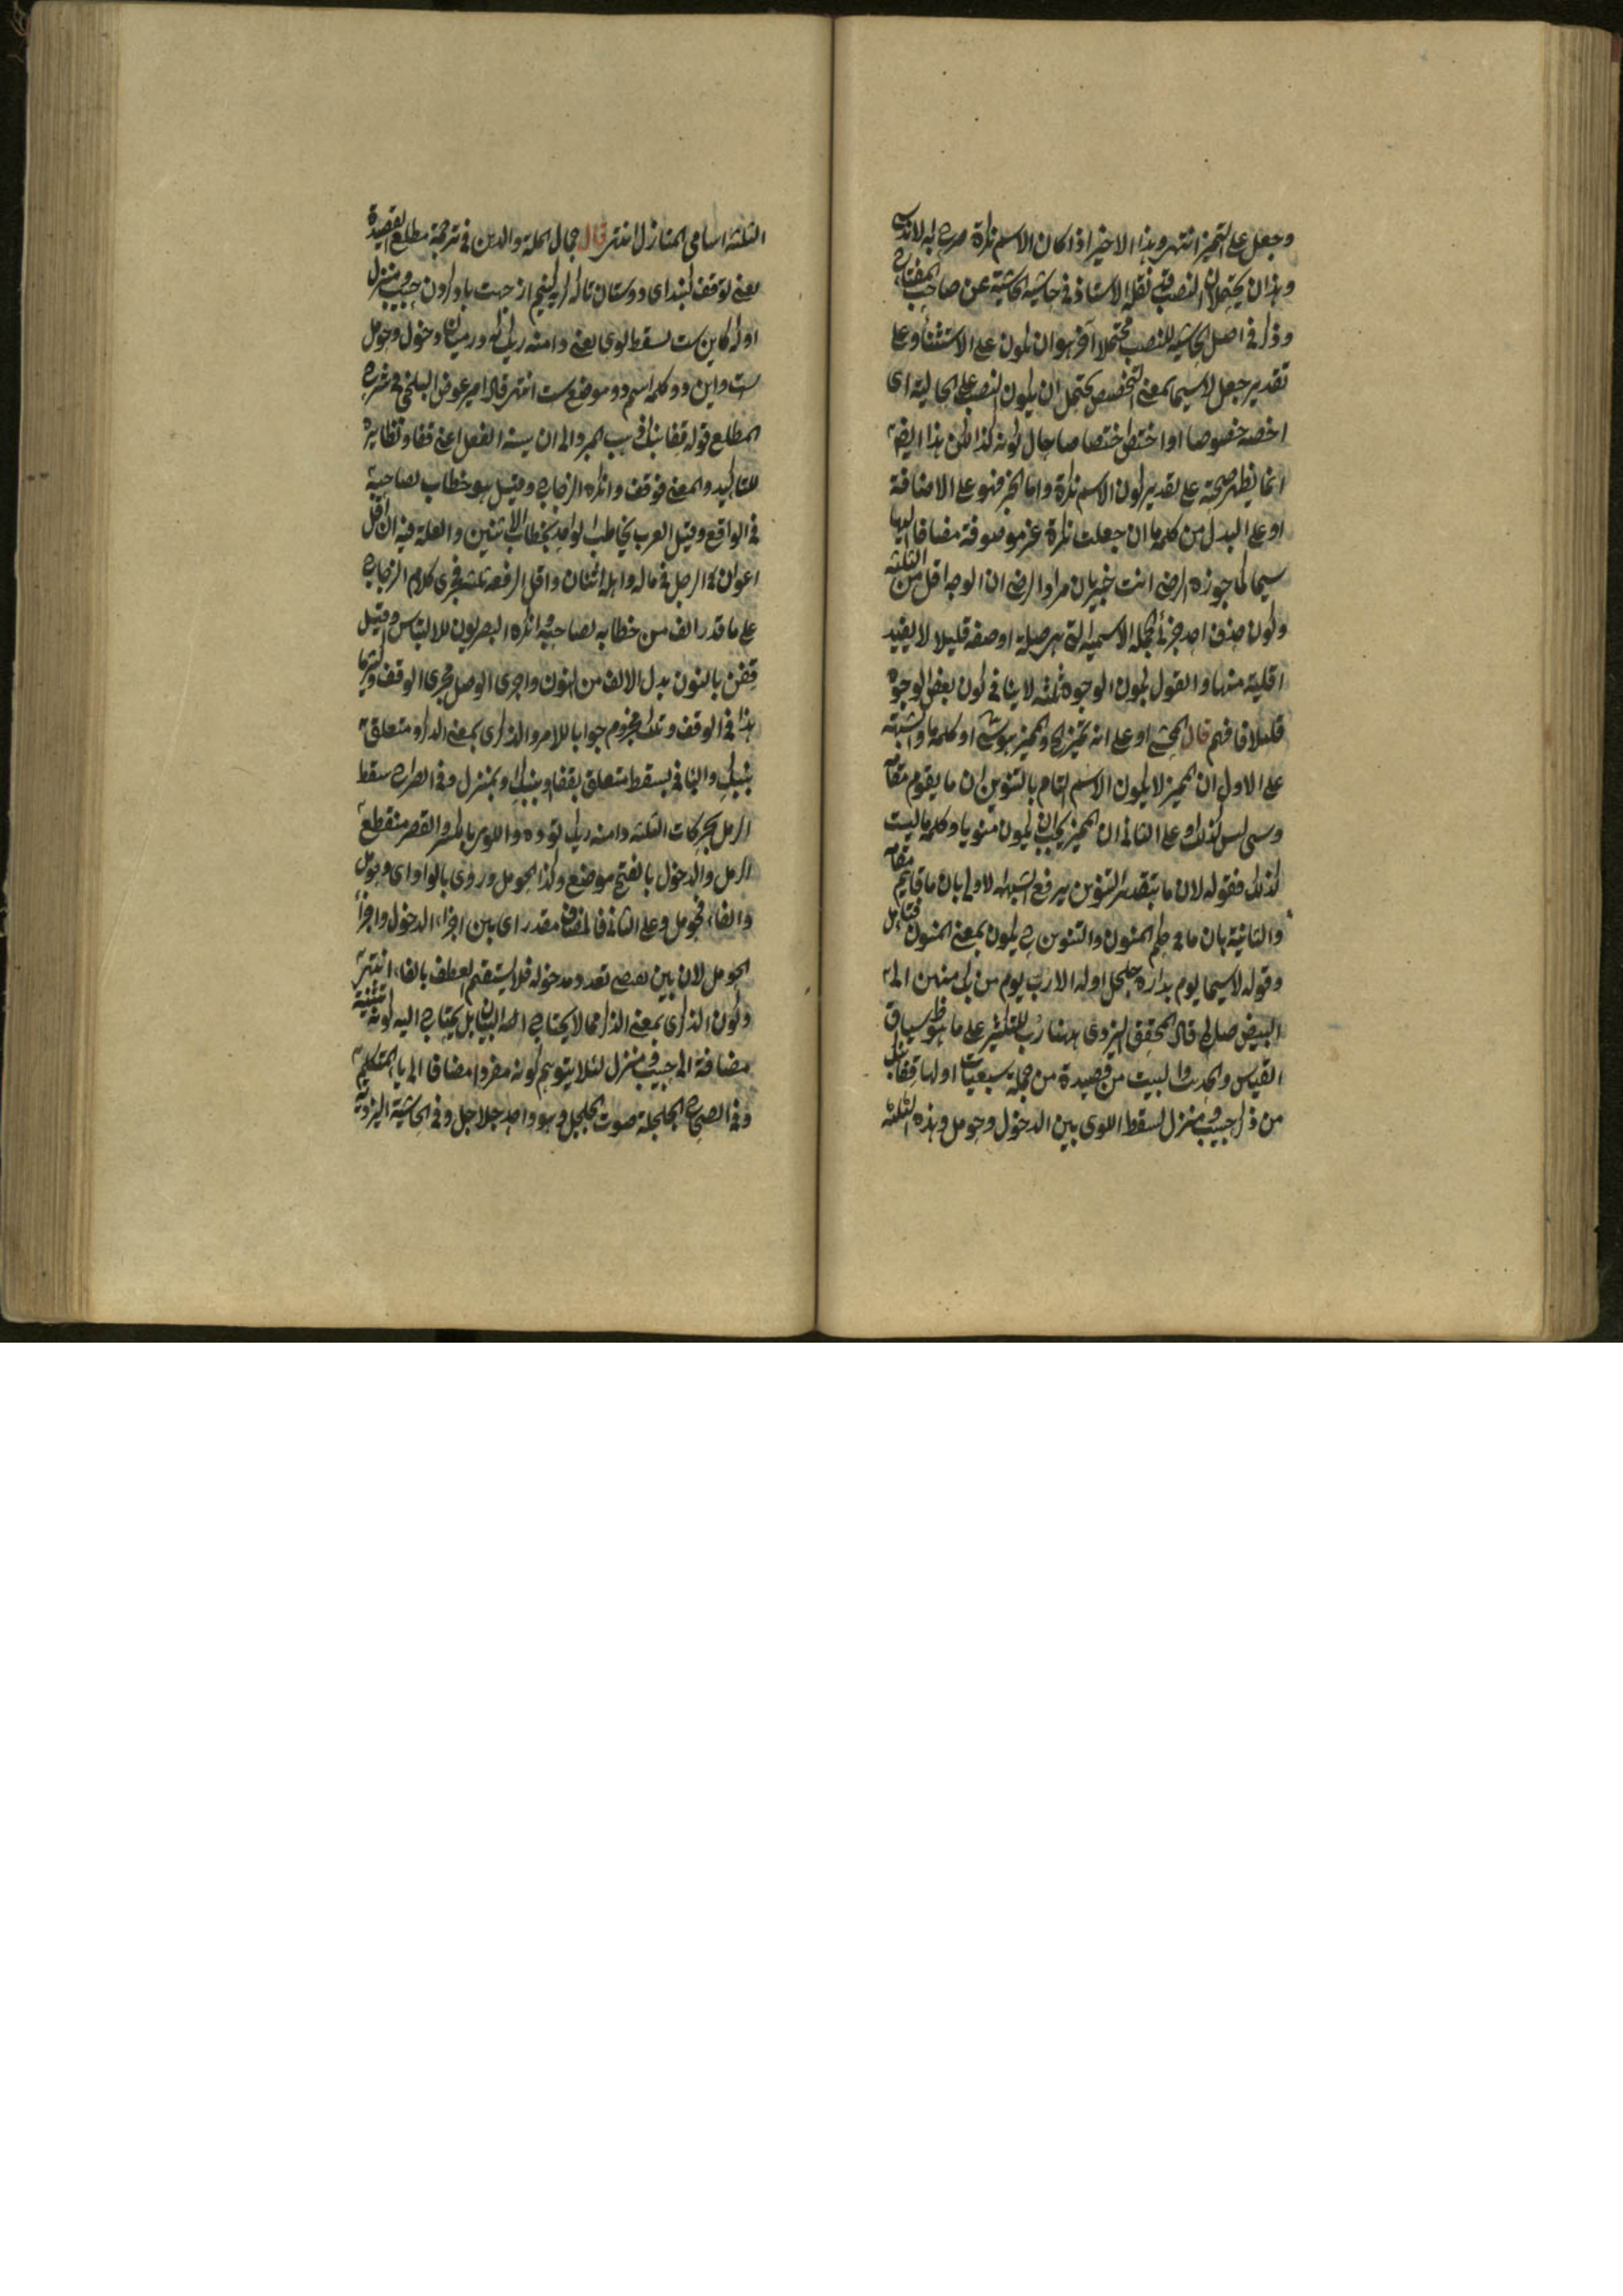 وجعل على التميز انتهى وهذا الاخير اذا كان الاسم نكرة صرح به الاندلسى
وهذان يحتملان النصب قد نقله الاستاذ فى حاشية الحاشية عن صاحب المفتاح
وذكر فى اصل الحاشية للنصب محتملا آخر هو ان يكون على الاستثناء وعلى
تقدير جعل لا سيما بمعنى التخصيص يحتمل ان يكون النصب على الحالية اى
اخصه خصوصا او اختص اختصاصا حال كونه كذا لكن هذا ايضا
انما يظهر صحته على تقدير كون الاسم نكرة واما الجر فهو على الاضافة
او على البدل من كلمة ما ان جعلت نكرة غير موصوفة مضافا اليها
سيما كما جوزه الرضى انت خبير بان مراد الرضى ان الوجه اقل من الثلثة
وكون حذف احد جزئى الجملة الاسمية التى هى صلة او صفة قليلا لا يفيد
اقلية منها والقول بكون الوجوه ثلثة لا ينافى كون بعض الوجوه
قليلا فافهم قال المحشى او على انه تميز الخ والمميز هو سى او كلمة ما والشبهة
على الاول ان المميز لا يكون الا الاسم التام بالتنوين او ما يقوم مقامه
وسى ليس كذلك وعلى الثانى ان المميز يجب ان يكون منويا وكلمة ما ليست
كذلك فقوله لان ما بتقدير التنوين يرفع الشبهة الاولى بان ما قايم مقامه
والثانية بان ما فى حكم المنون والتنوين ح يكون بمعنى المنون فتأمل
وقوله لا سيما يوم بدارة جلجل اوله الا رب يوم من لك منهن الى
البيض صالح قال المحقق اليزدى ههنا رب للتكثير على ما هو ظ سياق
القياس والحديث والبيت من قصيدة من جملة سبعيات اولها قفا نبك
من ذكرى حبيب ومنزل بسقط اللوى بين الدخول وحومل وهذه الثلثة
الثلثة اسامى المنازل انتهى قال جمال الملة والدين فى ترجمة مطلع القصيدة
يعنى توقف كنيد اى دوستان تا كه گريه كنيم از جهت ياد كردن حبيب ومنزل
او كه كاين ست بسقط لوى يعنى دامنه ريگ كه در ميان دخول وحومل
ست واين دو كلمه اسم دو موضع ست انتهى قال امير عوض البلخى فى شرح
المطلع قوله قفا نبك ذهب المبرد الى ان تثنية الفعل اعنى قفا ونظايره
للتاكيد والمعنى قف قف وانكره الزجاج وقيل هو خطاب لصاحبيه
فى الواقع وقيل العرب يخاطب الواحد بخطاب الاثنين والعلة فيه ان اقل
اعوان الرجل فى ماله واهله اثنان واقل الرفقة ثلثة فجرى كلام الرجاح
على ما قد الف من خطابه لصاحبيه وانكره البصريون للالتباس وقيل
قفن بالنون بدل الالف من النون واجرى الوصل مجرى الوقف واكثر ما
هذا فى الوقف ونبك مجزوم جوابا للامر والذكرى بمعنى الذكر ومتعلق
بنبك والباء فى بسقط متعلق بقفا ونبك او بمنزل وفى الصراح سقط
الرمل بحركات الثلثة دامنه ريگ توده واللوى بالكسر والقصر منقطع
الرمل والدخول بالفتح موضع وكذا الحومل وروى بالواو اى وحومل
والفاء فحومل وعلى الثانى فالمضاف مقدر اى بين اجزاء الدخول واجزاء
الحومل لان بين يقتضى تعدد مدخوله فلا يستقيم العطف بالفاء انتهى
وكون الذكرى بمعنى الذكر مما لا يحتاج الى البيان بل يحتاج اليه كونه تثنية
مضافة الى حبيب ومنزل لئلا يتوهم كونه مفردا مضافا الى ياء المتكلم
وفى الصحاح الجلجلة صوت الجلجل وهو واحد جلاجل وفى الحاشية اليزدية